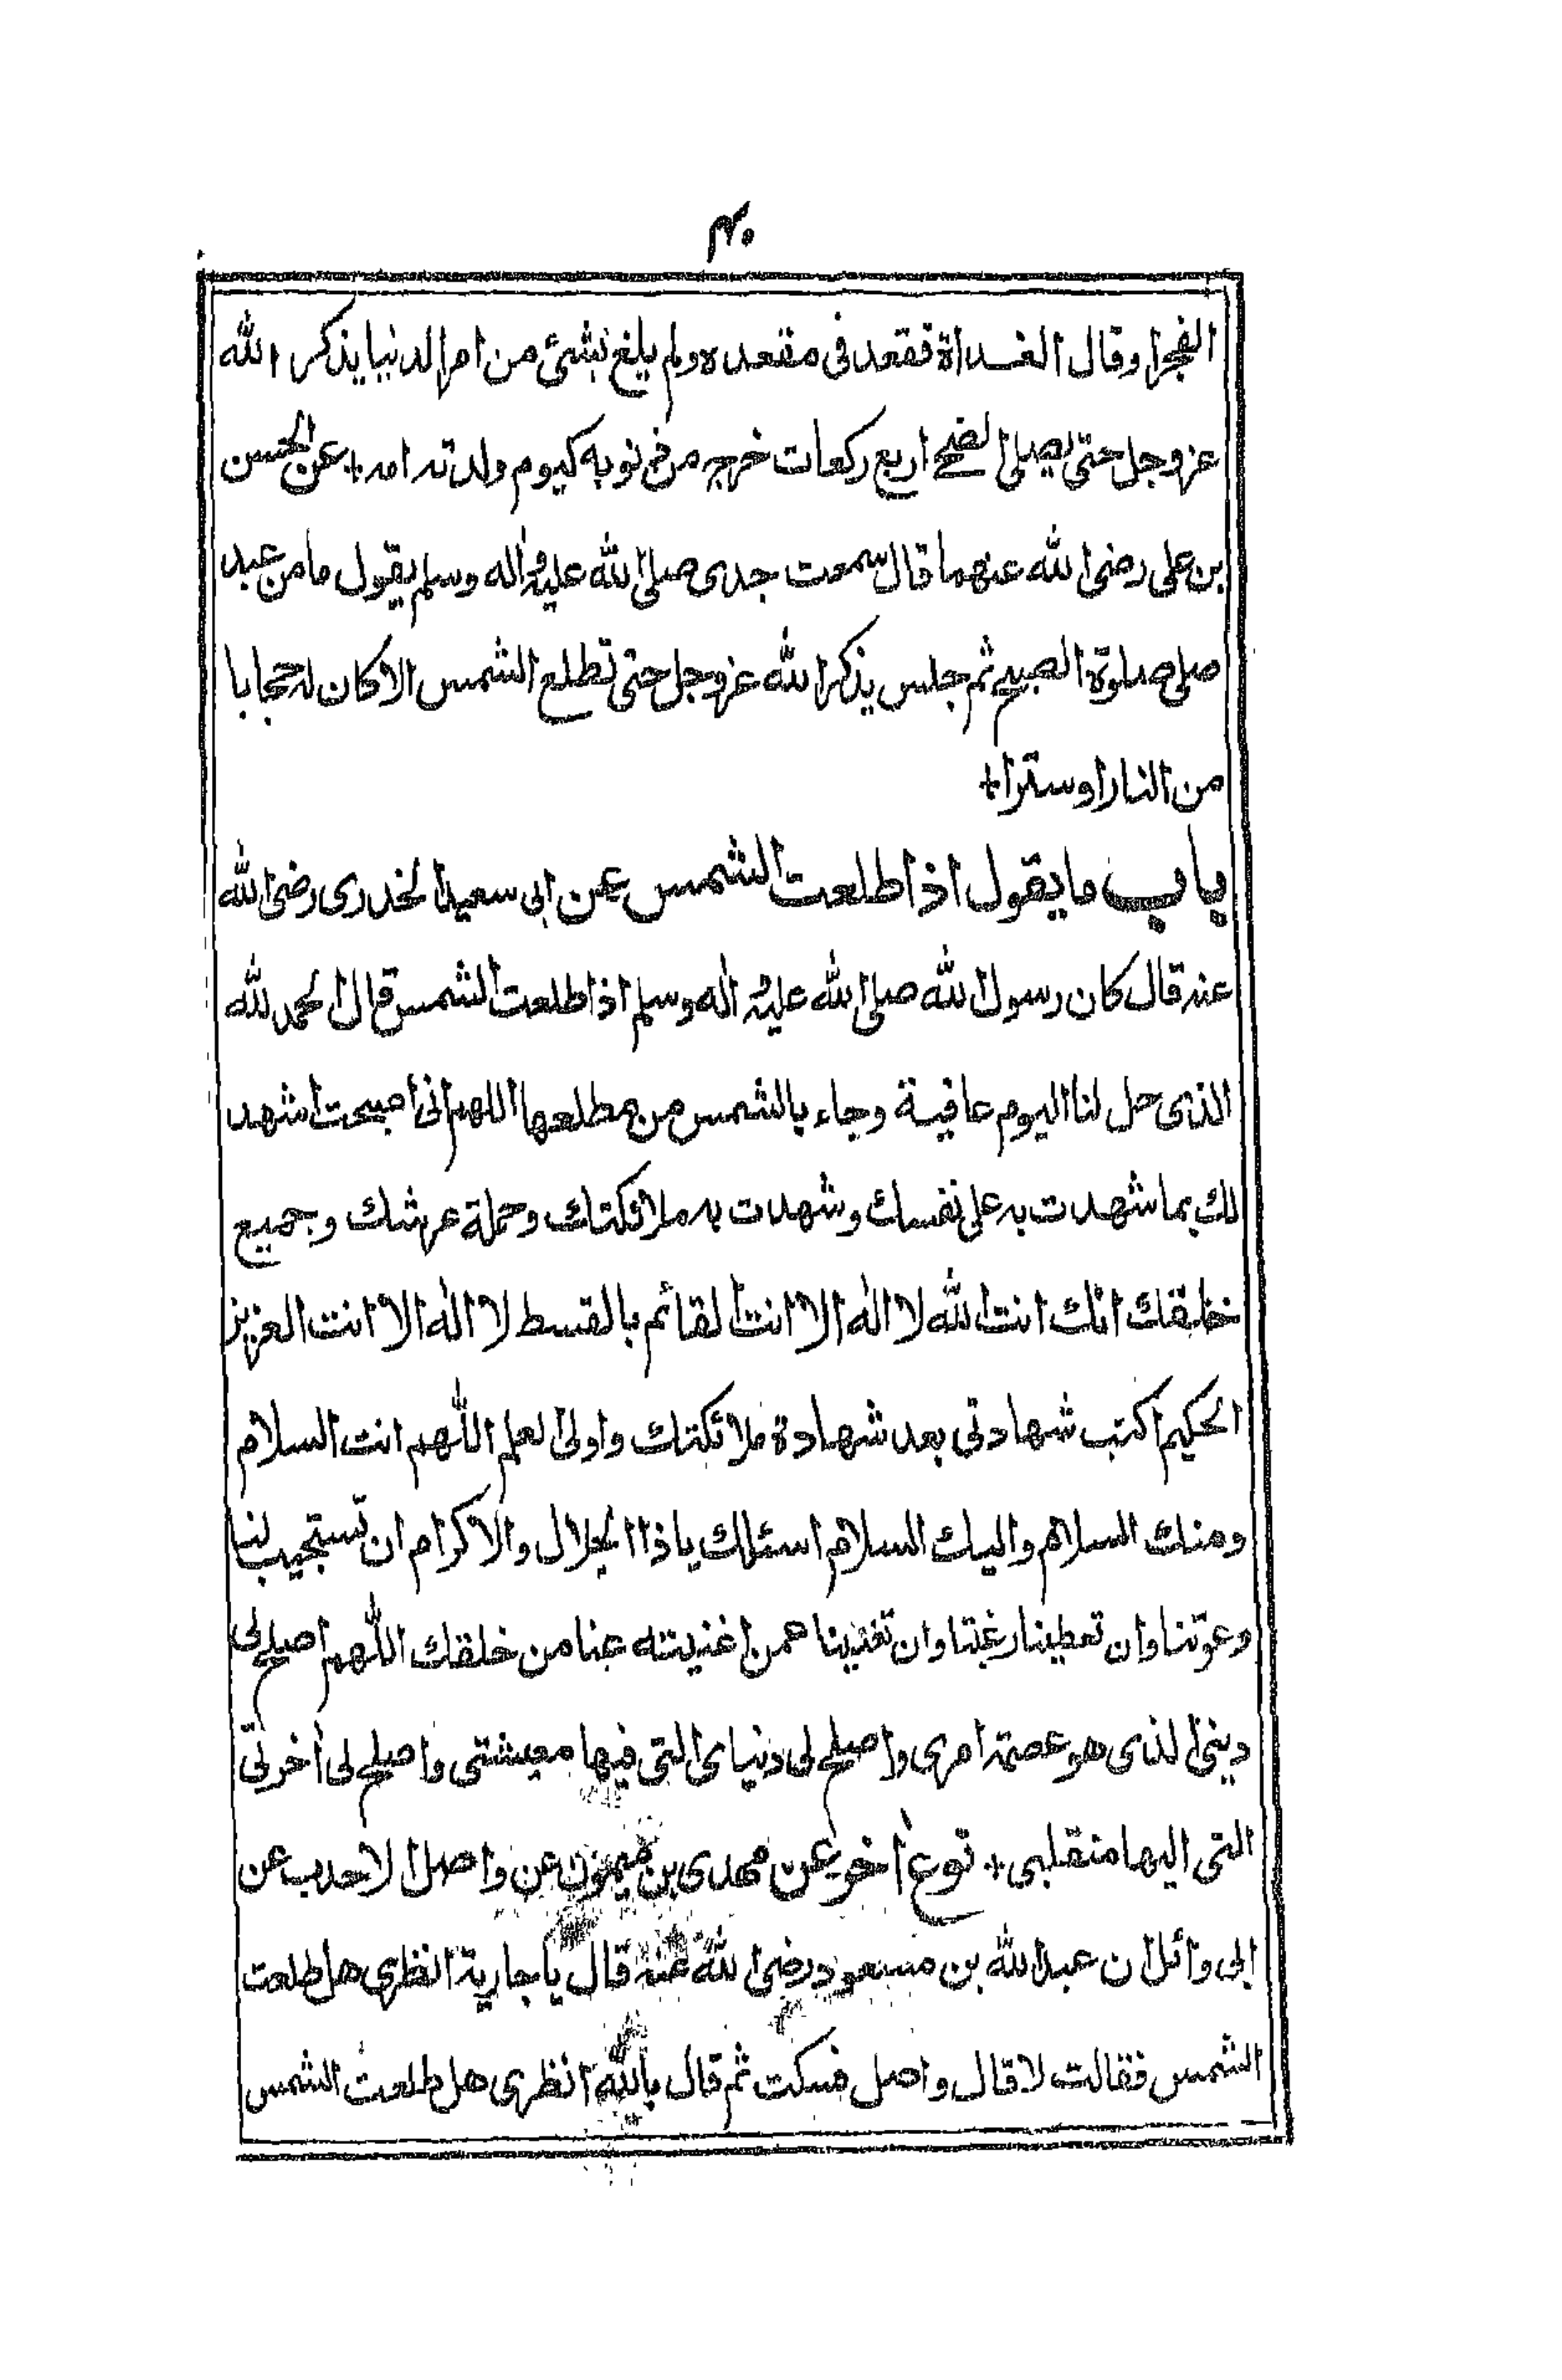 ۴۰
الفجر او قال الغداة فقعد فى مقعده ولم يلغ بشئ من امر الدنيا يذكر الله
عز وجل حتى يصلى الضحى اربع ركعات خرج من ذنوبه كيوم ولدته امه + عن الحسن
بن على رضى الله عنهما قال سمعت جدى صلى الله عليه واله وسلم يقول ما من عبد
صلى صلوة الصبح ثم جلس يذكر الله عز وجل حتى تطلع الشمس الا كان له حجابا
من النار او سترا +
باب ما يقول اذا طلعت الشمس عن ابى سعيد الخدرى رضى الله
عنه قال كان رسول الله صلى الله عليه واله وسلم اذا طلعت الشمس قال الحمد لله
الذى حل لنا اليوم عافية وجاء بالشمس من مطلعها اللهم انى اصبحت اشهد
لك بما شهدت به على نفسك وشهدت به ملائكتك وحملة عرشك وجميع
خلقك انك انت الله لا اله الا انت القائم بالقسط لا اله الا انت العزيز
الحكيم اكتب شهادتى بعد شهادة ملائكتك واولى العلم اللهم انت السلام
ومنك السلام واليك السلام اسئلك يا ذا الجلال والاكرام ان تستجيب لنا
دعوتنا وان تعطينا رغبتنا وان تغنينا عمن اغنيته عنا من خلقك اللهم اصلح لى
دينى الذى هو عصمة امرى واصلح لى دنياى التى فيها معيشتى واصلح لى أخرتى
التى اليها منقلبى + نوع أخر عن مهدى بن ميمون عن واصل الاحدب عن
ابى وائل ان عبد الله بن مسعود رضى الله عنه قال يا جارية انظرى هل طلعت
الشمس فقالت لا قال واصل فسكت ثم قال بالله انظرى هل طلعت الشمس